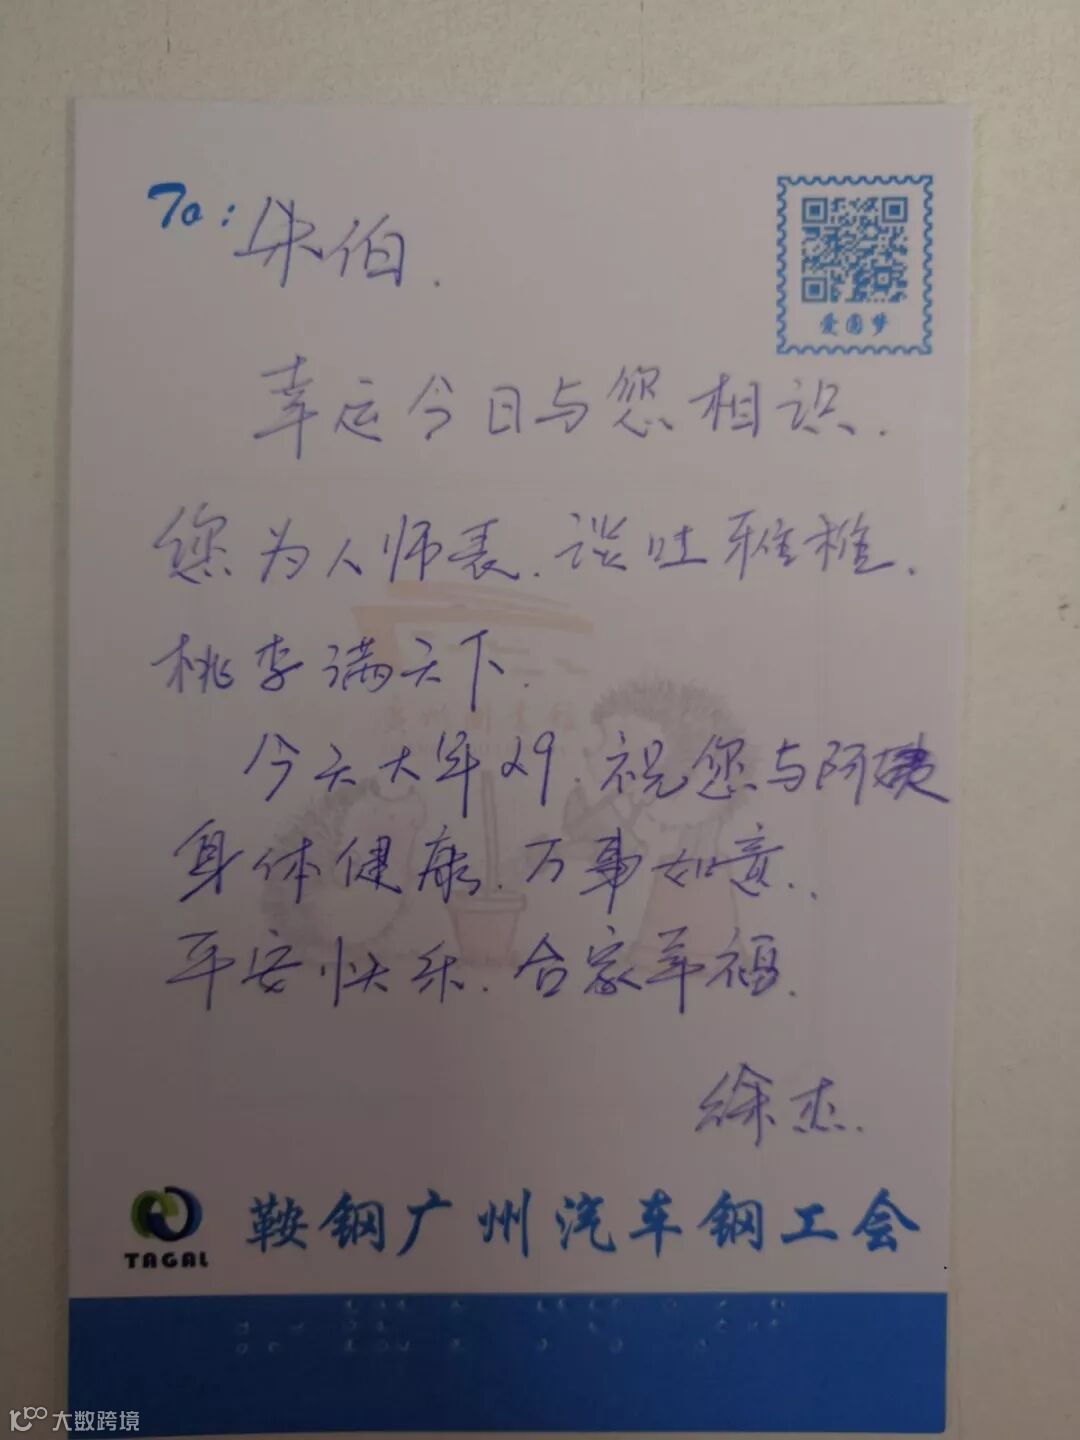 To: 朱伯.
爱圆梦
幸运今日与您相识.
您为人师表.谈吐雅稚.
桃李满天下.
今天大年29.祝您与阿姨
身体健康.万事如意..
平安快乐.合家幸福.
徐杰.
TAGAL 鞍钢广州汽车钢工会
大数跨境